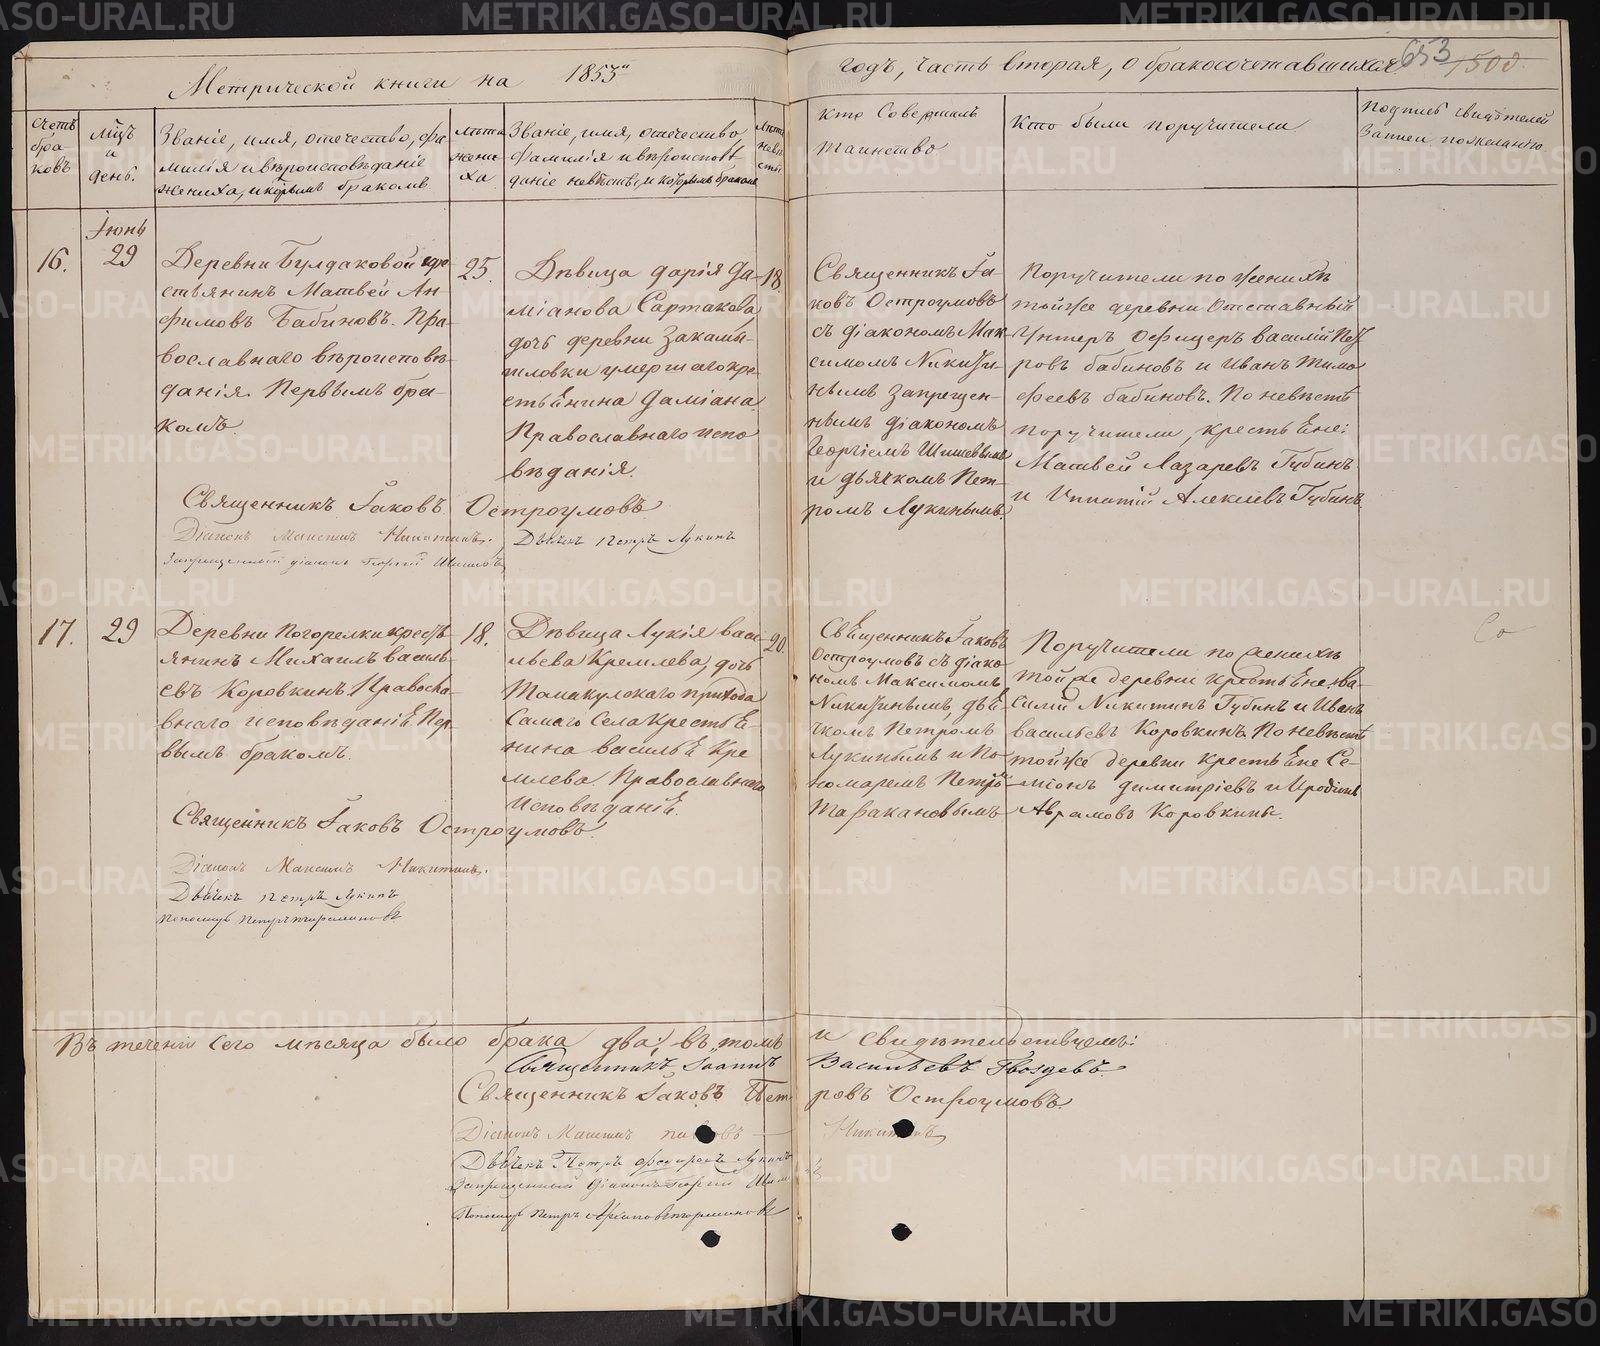 Метрической книги на 1855й
годъ, часть вторая, о бракосочетавшихся
653
счетъ браковъ
мцъ и день.
Званіе, имя, отечество, фа-
милія и вѣроисповѣданіе
жениха, и которымъ бракомъ.
лѣта
жени-
ха
Званіе, имя, отечество
фамилія и вѣроиспов-
даніе невѣсты, и которымъ бракомъ
лѣта
невѣ
сты
Кто совершилъ
таинство
Кто были поручители
Подпись свидѣтелей
записи по желанію
Іюнь
16.
29
Деревни Булдаковой кре-
стьянинъ Матвей Ан
фимовъ Бабиновъ. Пра-
вославнаго вѣроисповѣ-
данія. Первымъ бра-
комъ
25.
Дѣвица Дарія Да-
міанова Сартакова,
дочь деревни Закамы-
шловки умершаго кре-
стьянина Даміана
Православнаго испо
вѣданія.
18.
Священникъ Іа-
ковъ Остроумовъ
съ діакономъ Мак-
симомъ Никити-
нымъ запрещен-
нымъ діакономъ
Георгіемъ Шишевымъ
и дьячкомъ Пет-
ромъ Лукинымъ.
Поручители по женихѣ
тойже деревни Отставный
Унтеръ Офицеръ Василій Пет
ровъ Бабиновъ и Иванъ Тимо
феевъ Бабиновъ. По невѣстѣ
поручители, крестьяне:
Матвей Лазаревъ Губинъ
и Ипатій Алексѣевъ Губинъ.
Священникъ Іаковъ Остроумовъ
Діаконъ Максимъ Никитинъ.
Дьячекъ Петръ Лукинъ
Запрещенный діаконъ Георгій Шишевъ
17.
29
Деревни Погорелки кресть
янинъ Михаилъ Василь-
евъ Коровкинъ. Правосла-
внаго исповѣданія. Пер-
вымъ бракомъ.
18.
Дѣвица Лукія Васи-
льева Кремлева, дочь
Тамакулскаго прихода
Самаго Села Крестья-
нина Василья Кре
млева Православнаго
исповѣданія.
20.
Священникъ Іаковъ
Остроумовъ съ діако-
номъ Максимомъ
Никитинымъ, дья-
чкомъ Петромъ
Лукинымъ и по-
номаремъ Петромъ
Таракановымъ
Поручители по женихѣ
тойже деревни крестьяне Ва-
силій Никитинъ Губинъ и Иванъ
Васильевъ Коровкинъ. По невѣстѣ
тойже деревни крестьяне Се-
міонъ Димитріевъ и Иродіонъ
Аврамовъ Коровкины.
Священникъ Іаковъ Остроумовъ.
Діаконъ Максимъ Никитинъ.
Дьячекъ Петръ Лукинъ
Пономарь Петръ Таракановъ
Въ теченіи сего мѣсяца было брака два; въ томъ и свидѣтельствуемъ:
Священникъ Іоаннъ Васильевъ Гвоздевъ.
Священникъ Іаковъ Петровъ Остроумовъ.
Діаконъ Максимъ Никитинъ
Дьячекъ Петръ Лукинъ
Запрещенный діаконъ Георгій
Пономарь Петръ Таракановъ
METRIKI.GASO-URAL.RU